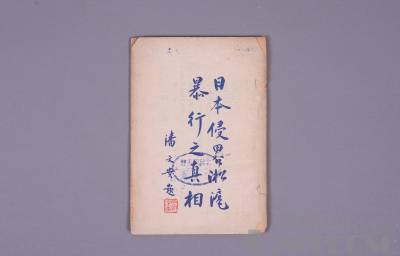 日本侵畧淞滬
暴行之真相
潘文安題